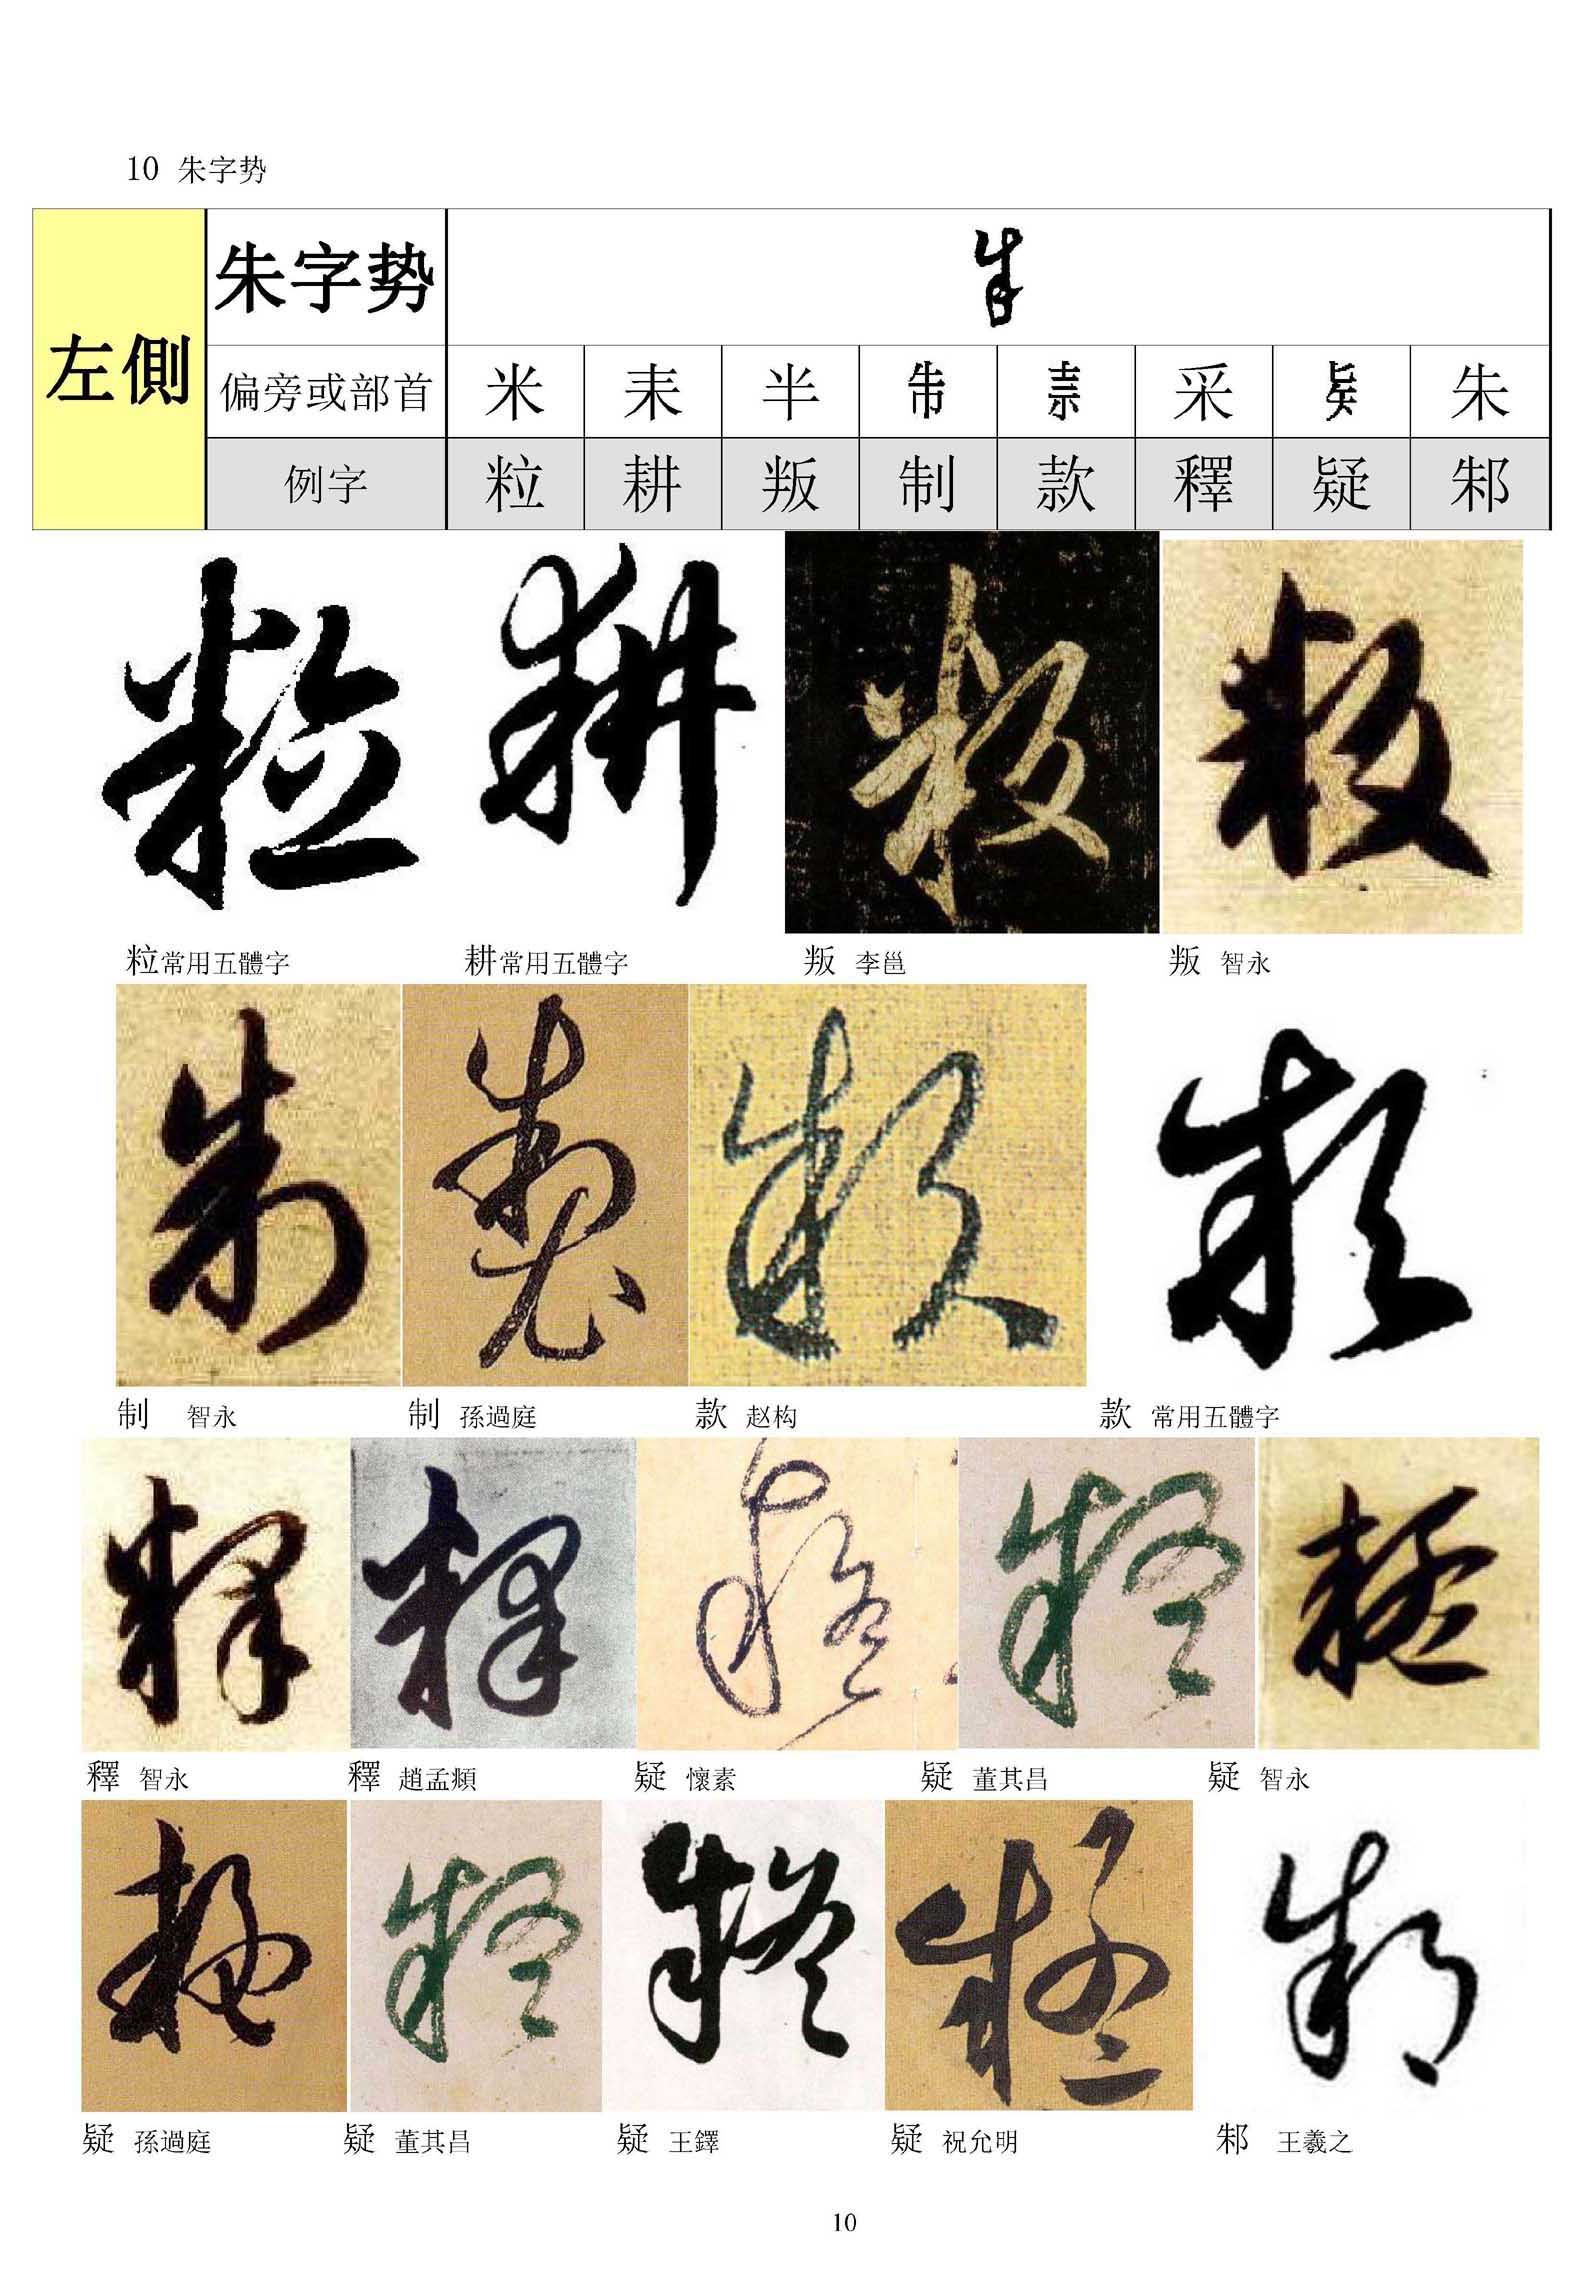 10 朱字势
左側
朱字势
偏旁或部首 米 耒 半 釆 朱
例字 粒 耕 叛 制 款 釋 疑 邾
粒常用五體字 耕常用五體字 叛 李邕 叛 智永
制 智永 制 孫過庭 款 赵构 款 常用五體字
釋 智永 釋 趙孟頫 疑 懷素 疑 董其昌 疑 智永
疑 孫過庭 疑 董其昌 疑 王鐸 疑 祝允明 邾 王羲之
10